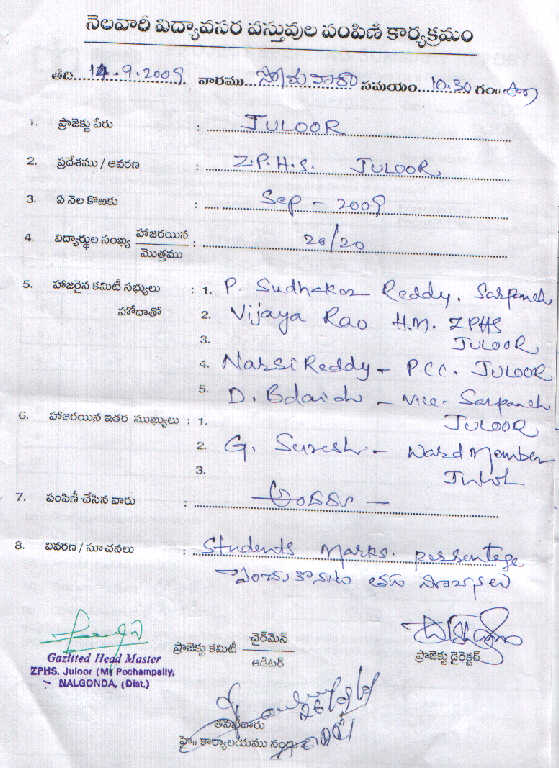 నెలవారీ విద్యావసర వస్తువుల పంపిణి కార్యక్రమం
తేది 14.9.2009 వారము సోమవారం సమయం 10.30 గం॥
1. ప్రాజెక్టు పేరు : JULOOR
2. ప్రదేశము / ఆవరణ : Z.P.H.S. JULOOR
3. ఏ నెల కొఱకు : Sep - 2009
4. విద్యార్థుల సంఖ్య హాజరయిన / మొత్తము : 20/20
5. హాజరైన కమిటీ సభ్యులు : 1. P. Sudhakar Reddy. Sarpanch
హోదాతో 2. Vijaya Rao H.M. ZPHS
3. JULOOR
4. Narsi Reddy - PCC. JULOOR
5. D. - Vice. Sarpanch
JULOOR
6. హాజరయిన ఇతర ముఖ్యులు : 1.
2. G. Suresh - Ward Member
3.
7. పంపిణీ చేసిన వారు : అందరు -
8. వివరణ / సూచనలు : Students marks. perssentege
పెంచుకొనుట తగు
Gazitted Head Master
ZPHS, Juloor (M) Pochampally,
NALGONDA, (Dist.)
ప్రాజెక్టు కమిటీ చైర్‌మెన్ / ఆడిటర్
ప్రాజెక్టు డైరెక్టర్
తనిఖీదారు
హై॥ కార్యాలయము నందు